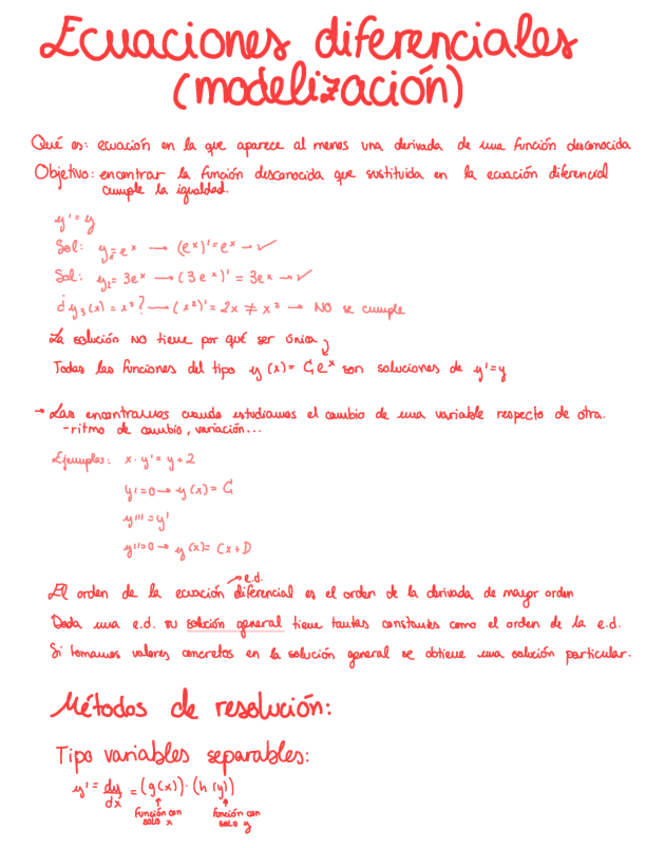 Ecuaciones diferenciales
(modelización)
Qué es: ecuación en la que aparece al menos una derivada de una función desconocida
Objetivo: encontrar la función desconocida que sustituida en la ecuación diferencial
cumple la igualdad.
y' = y
Sol: y₁= eˣ → (eˣ)'= eˣ → ✓
Sol: y₂= 3eˣ → (3eˣ)' = 3eˣ → ✓
¿y₃(x) = x²? → (x²)' = 2x ≠ x² → NO se cumple
La solución NO tiene por qué ser única
Todas las funciones del tipo y(x)= C·eˣ son soluciones de y'=y
→ Las encontramos cuando estudiamos el cambio de una variable respecto de otra.
-ritmo de cambio, variación...
Ejemplos: x · y' = y + 2
y'=0 → y(x) = C
y''' = y'
y''=0 → y(x)= Cx+D
→ e.d.
El orden de la ecuación diferencial es el orden de la derivada de mayor orden
Dada una e.d. su solución general tiene tantas constantes como el orden de la e.d.
Si tomamos valores concretos en la solución general se obtiene una solución particular.
Métodos de resolución:
Tipo variables separables:
y' = dy/dx = (g(x)) · (h(y))
función con solo x
función con solo y